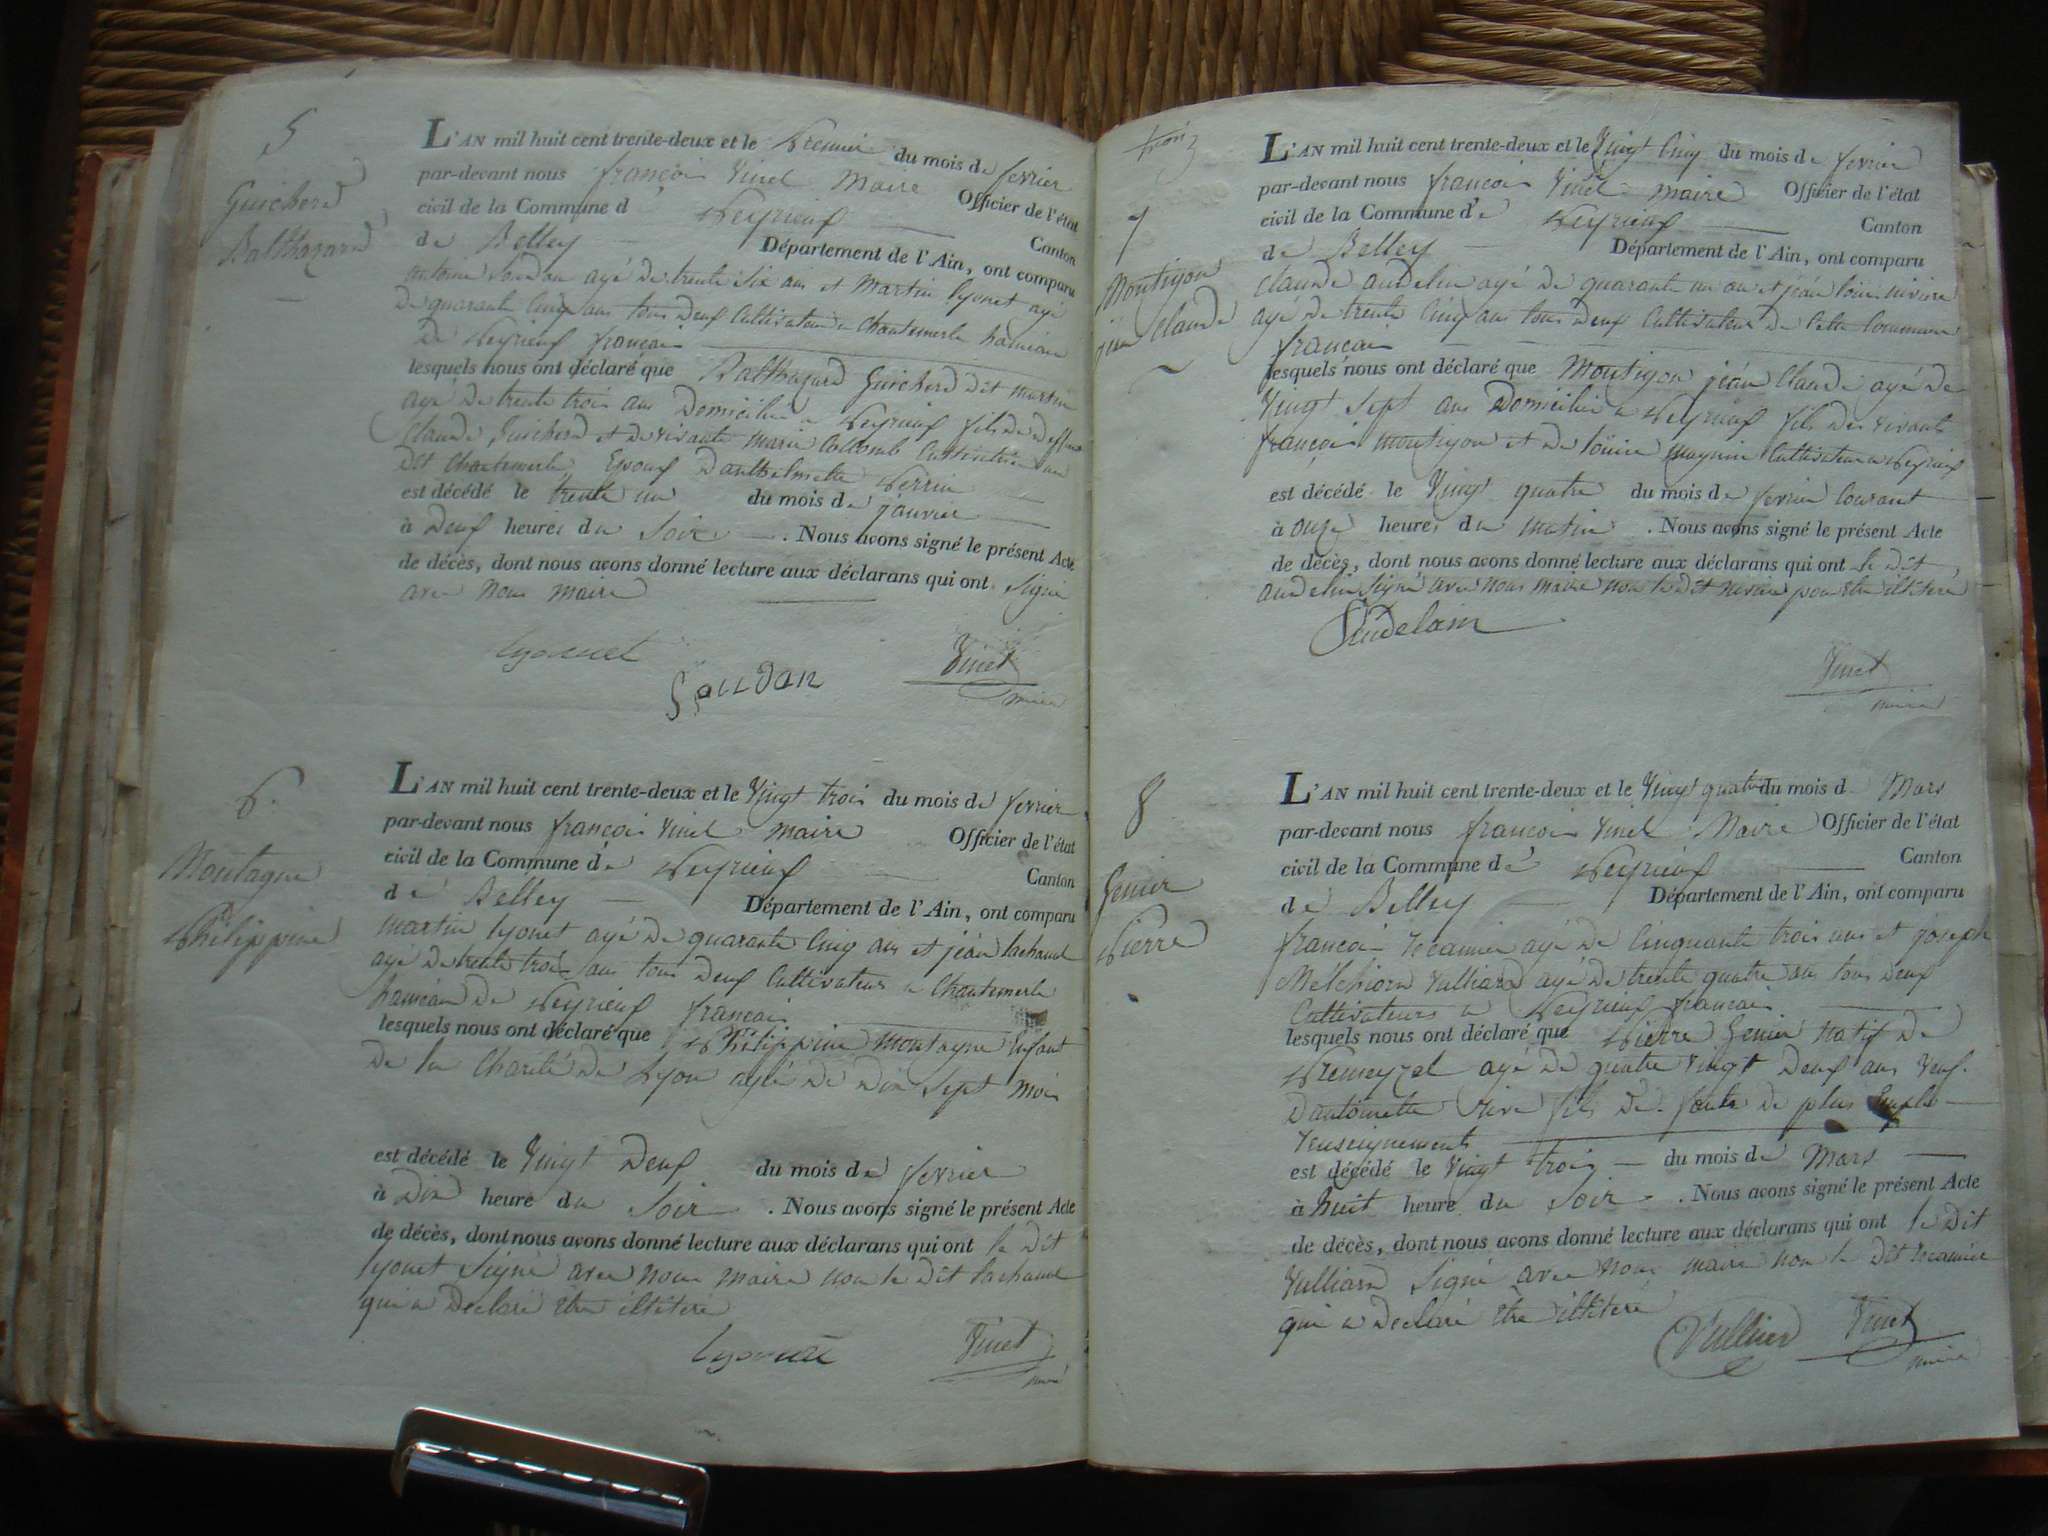 5
Guicherd
Balthazard
L'AN mil huit cent trente-deux et le premier du mois de fevrier
par-devant nous françois Vinet maire Officier de l'état
civil de la Commune d peyrieux Canton
de Belley Département de l'Ain, ont comparu
antoine Soudan agé de trente six ans et Martin lyonet agé
de quarante cinq ans tous deux Cultivateurs a Chantemerle hameau
de peyrieux françois
lesquels nous ont déclaré que Balthazard Guicherd dit martin
agé de trente trois ans Domicilié a peyrieux fils de deffunt
Claude Guicherd et de vivante marie Collomb Cultivatrice au
dit Chantemerle Epoux Danthelmette perrin
est décédé le trente un du mois de janvier
à deux heures du Soir . Nous avons signé le présent Acte
de décès, dont nous avons donné lecture aux déclarans qui ont Signé
avec nous maire
lyonnet
Soudan
Vinet
maire
6.
Montagne
philippine
L'AN mil huit cent trente-deux et le Vingt trois du mois de fevrier
par-devant nous françois Vinet maire Officier de l'état
civil de la Commune de peyrieux Canton
de Belley Département de l'Ain, ont comparu
martin lyonet agé de quarante cinq ans et jean lachaud
agé de trente trois ans tous deux Cultivateurs a Chantemerle
hameau de peyrieux françois
lesquels nous ont déclaré que philippine Montagne Enfant
de la Charité de Lyon agée de dix Sept mois
est décédé le Vingt deux du mois de fevrier
à dix heure du Soir . Nous avons signé le présent Acte
de décès, dont nous avons donné lecture aux déclarans qui ont le dit
lyonet Signé avec nous maire non le dit lachaud
qui a Declaré être illitéré
Vinet
maire
trois
7
Montigon
jean Claude
L'AN mil huit cent trente-deux et le Vingt Cinq du mois de fevrier
par-devant nous françois Vinet maire Officier de l'état
civil de la Commune de peyrieux Canton
de Belley Département de l'Ain, ont comparu
Claude audelin agé de quarante un ans et jean louis
agé de trente cinq ans tous deux Cultivateurs de Cette Commune
françois
lesquels nous ont déclaré que Montigon jean Claude agé de
Vingt Sept ans Domicilié a peyrieux fils des vivants
françois montigon et de louise Cultivateurs a peyrieux
est décédé le Vingt quatre du mois de fevrier Courant
à onze heures du matin . Nous avons signé le présent Acte
de décès, dont nous avons donné lecture aux déclarans qui ont le dit
audelin Signé avec nous maire non le dit pour être illitéré
audelain
Vinet
maire
8
Genier
pierre
L'AN mil huit cent trente-deux et le Vingt quatre du mois d Mars
par-devant nous françois Vinet Maire Officier de l'état
civil de la Commune de peyrieux Canton
de Belley Département de l'Ain, ont comparu
françois recamier agé de Cinquante trois ans et joseph
Melchiord Vulliard agé de trente quatre ans tous deux
Cultivateurs a peyrieux françois
lesquels nous ont déclaré que pierre Genier natif de
premeyzel agé de quatre Vingt deux ans Veuf
Dantoinette rive fils de faute de plus Emple
renseignements
est décédé le vingt trois du mois de Mars
à huit heure du Soir . Nous avons signé le présent Acte
de décès, dont nous avons donné lecture aux déclarans qui ont le dit
Vulliard Signé avec nous maire non le dit recamier
qui a Declaré être illitéré
Vinet
maire